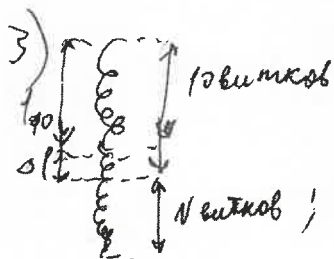 3)
10 витков
Δl
N витков;